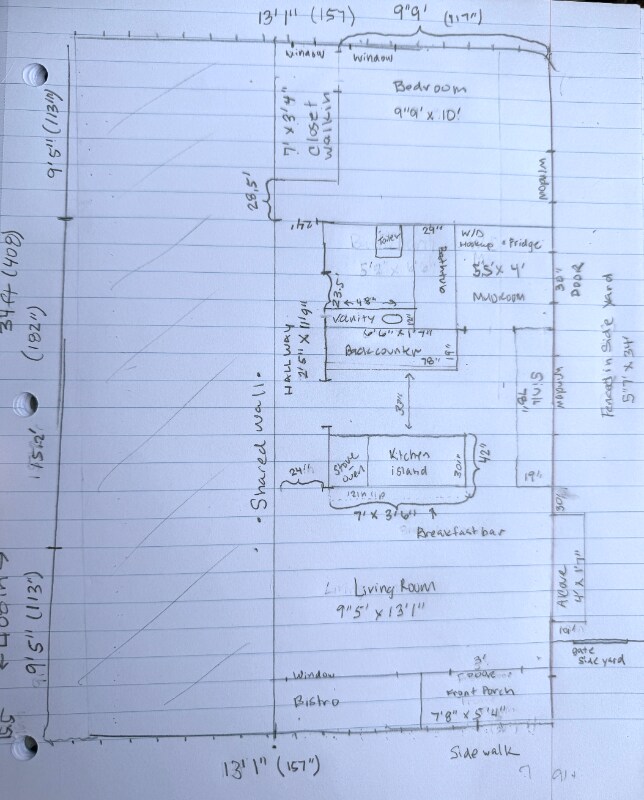 13'1" (157)
9"9' (117")
window
window
Bedroom
9"9' x 10'
7' x 3'4"
Closet
walkin
9'5" (113")
28.5'
24"
29"
Toilet
pantry
W/D
Hookup + Fridge
5.5' x 4'
MUDROOM
window
30"
DOOR
Fenced in side yard
5'7' x 34'
34ft (408)
(182")
15.2'
Hallway
2'5" x 11'9"
23.5'
48"
Vanity
6'6" x 1'7"
Back counter
78"
19"
Shared wall
window
19"
Stove
oven
Kitchen
island
30"
42"
24"
7' x 3'6"
Breakfast bar
30"
Alcove
4' x 1'7"
Living Room
9'5' x 13'1"
gate
side yard
9'5" (113")
window
3'
Bistro
Front Porch
7'8" x 5'4"
Sidewalk
13'1" (157")